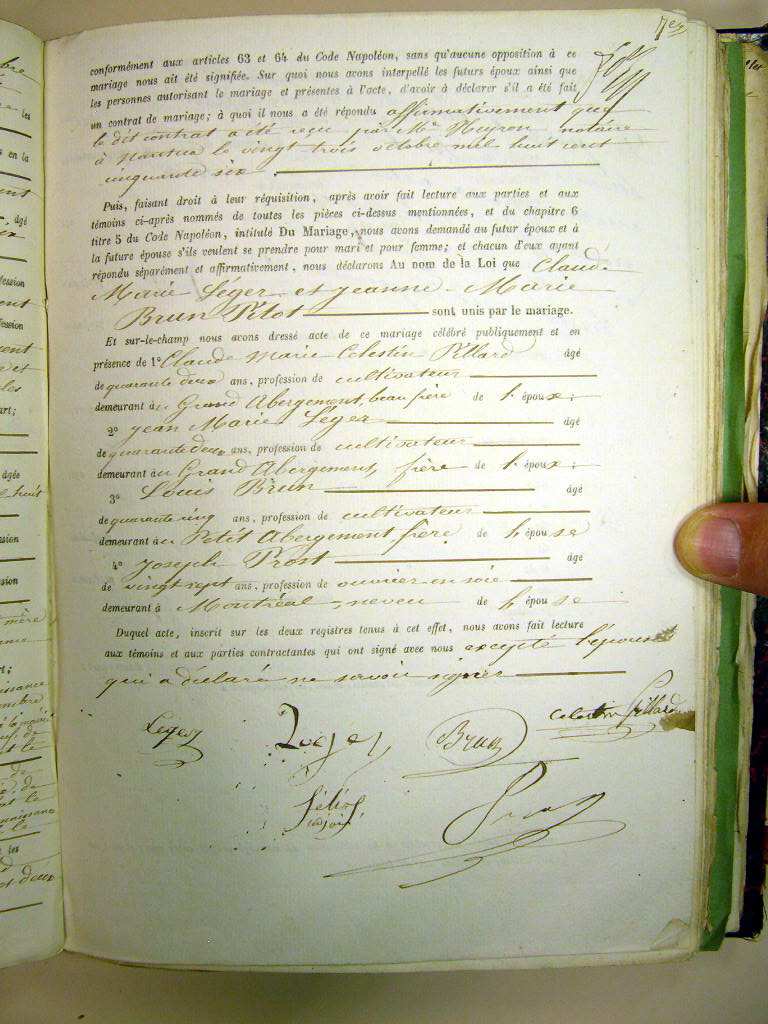 7e
conformément aux articles 63 et 64 du Code Napoléon, sans qu'aucune opposition à ce
mariage nous ait été signifiée. Sur quoi nous avons interpellé les futurs époux ainsi que
les personnes autorisant le mariage et présentes à l'acte, d'avoir à déclarer s'il a été fait
un contrat de mariage; à quoi il nous a été répondu affirmativement que
le dit contrat a été reçu par Me Neyron notaire
à Nantua le vingt trois octobre mil huit cent
cinquante six
Puis, faisant droit à leur réquisition, après avoir fait lecture aux parties et aux
témoins ci-après nommés de toutes les pièces ci-dessus mentionnées, et du chapitre 6
titre 5 du Code Napoléon, intitulé Du Mariage, nous avons demandé au futur époux et à
la future épouse s'ils veulent se prendre pour mari et pour femme; et chacun d'eux ayant
répondu séparément et affirmativement, nous déclarons Au nom de la Loi que Claude
Marie Léger et jeanne-Marie
Brun Pitot sont unis par le mariage.
Et sur-le-champ nous avons dressé acte de ce mariage célébré publiquement et en
présence de 1° Claude Marie Celestin Pillard âgé
de quarante deux ans, profession de cultivateur
demeurant au Grand Abergement, beau frère de l'époux;
2° jean Marie Léger âgé
de quarante deux ans, profession de cultivateur
demeurant au Grand Abergement, frère de l'époux;
3° Louis Brun âgé
de quarante cinq ans, profession de cultivateur
demeurant au Petit Abergement frère de l'épouse
4° Joseph Prost âgé
de vingt sept ans, profession de ouvrier en soie
demeurant à Montréal, neveu de l'épouse
Duquel acte, inscrit sur les deux registres tenus à cet effet, nous avons fait lecture
aux témoins et aux parties contractantes qui ont signé avec nous excepté l'épouse
qui a déclaré ne savoir signer
Leger
Leger
Brun
Celestin Pillard
adjoint
Prost